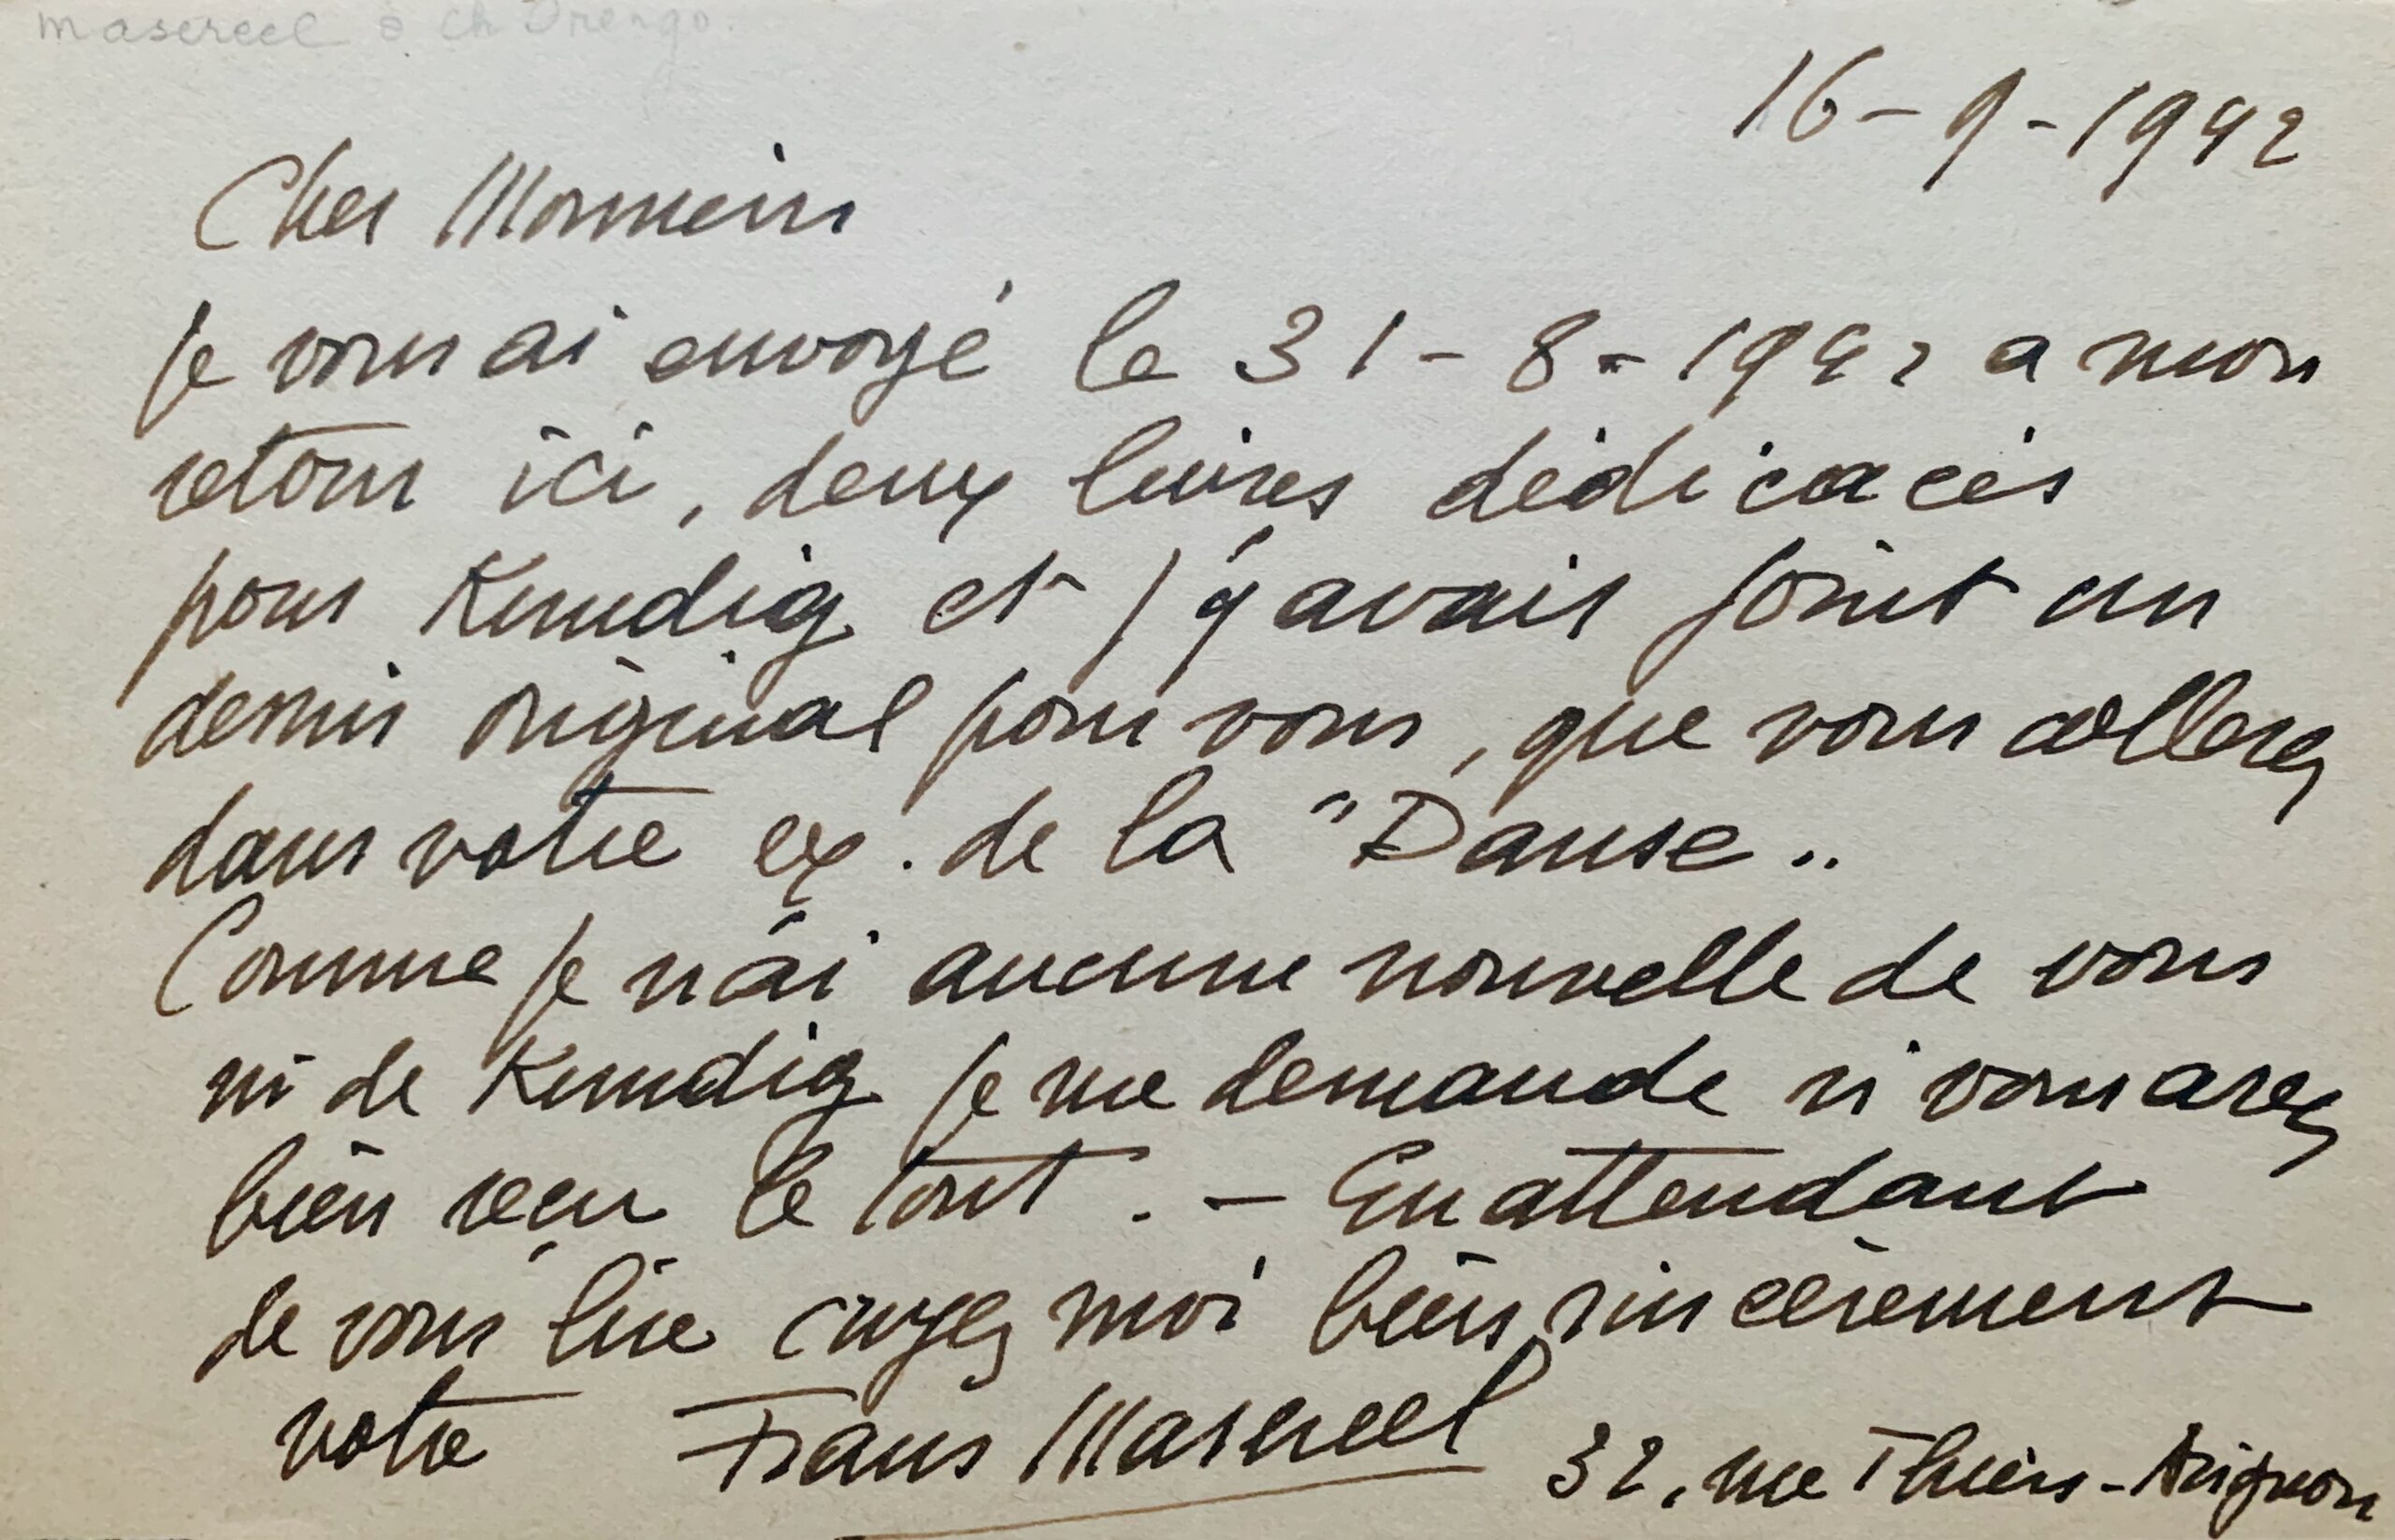 masereel à ch Drengo.
16-9-1942
Cher Monsieur
je vous ai envoyé le 31-8-1942 a mon
retour ici, deux livres dédicacés
pour Kundig et j'y avais joint un
dessin original pour vous, que vous collerez
dans votre ex. de la "Danse„
Comme je n'ai aucune nouvelle de vous
ni de Kundig je me demande si vous avez
bien reçu le tout. - En attendant
de vous lire croyez moi bien sincèrement
votre Frans Masereel 32, rue Thiers - Avignon